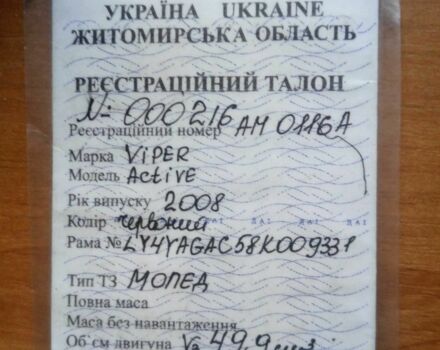 УКРАЇНА UKRAINE
ЖИТОМИРСЬКА ОБЛАСТЬ
РЕЄСТРАЦІЙНИЙ ТАЛОН
№ 000216
Реєстраційний номер АМ 0116А
Марка ViPER
Модель Active
Рік випуску 2008
Колір червоний
ДАІ ДАІ ДАІ
Рама № LY4YAGAC58K009331
Тип ТЗ МОПЕД
Повна маса
Маса без навантаження
Об'єм двигуна 49,9